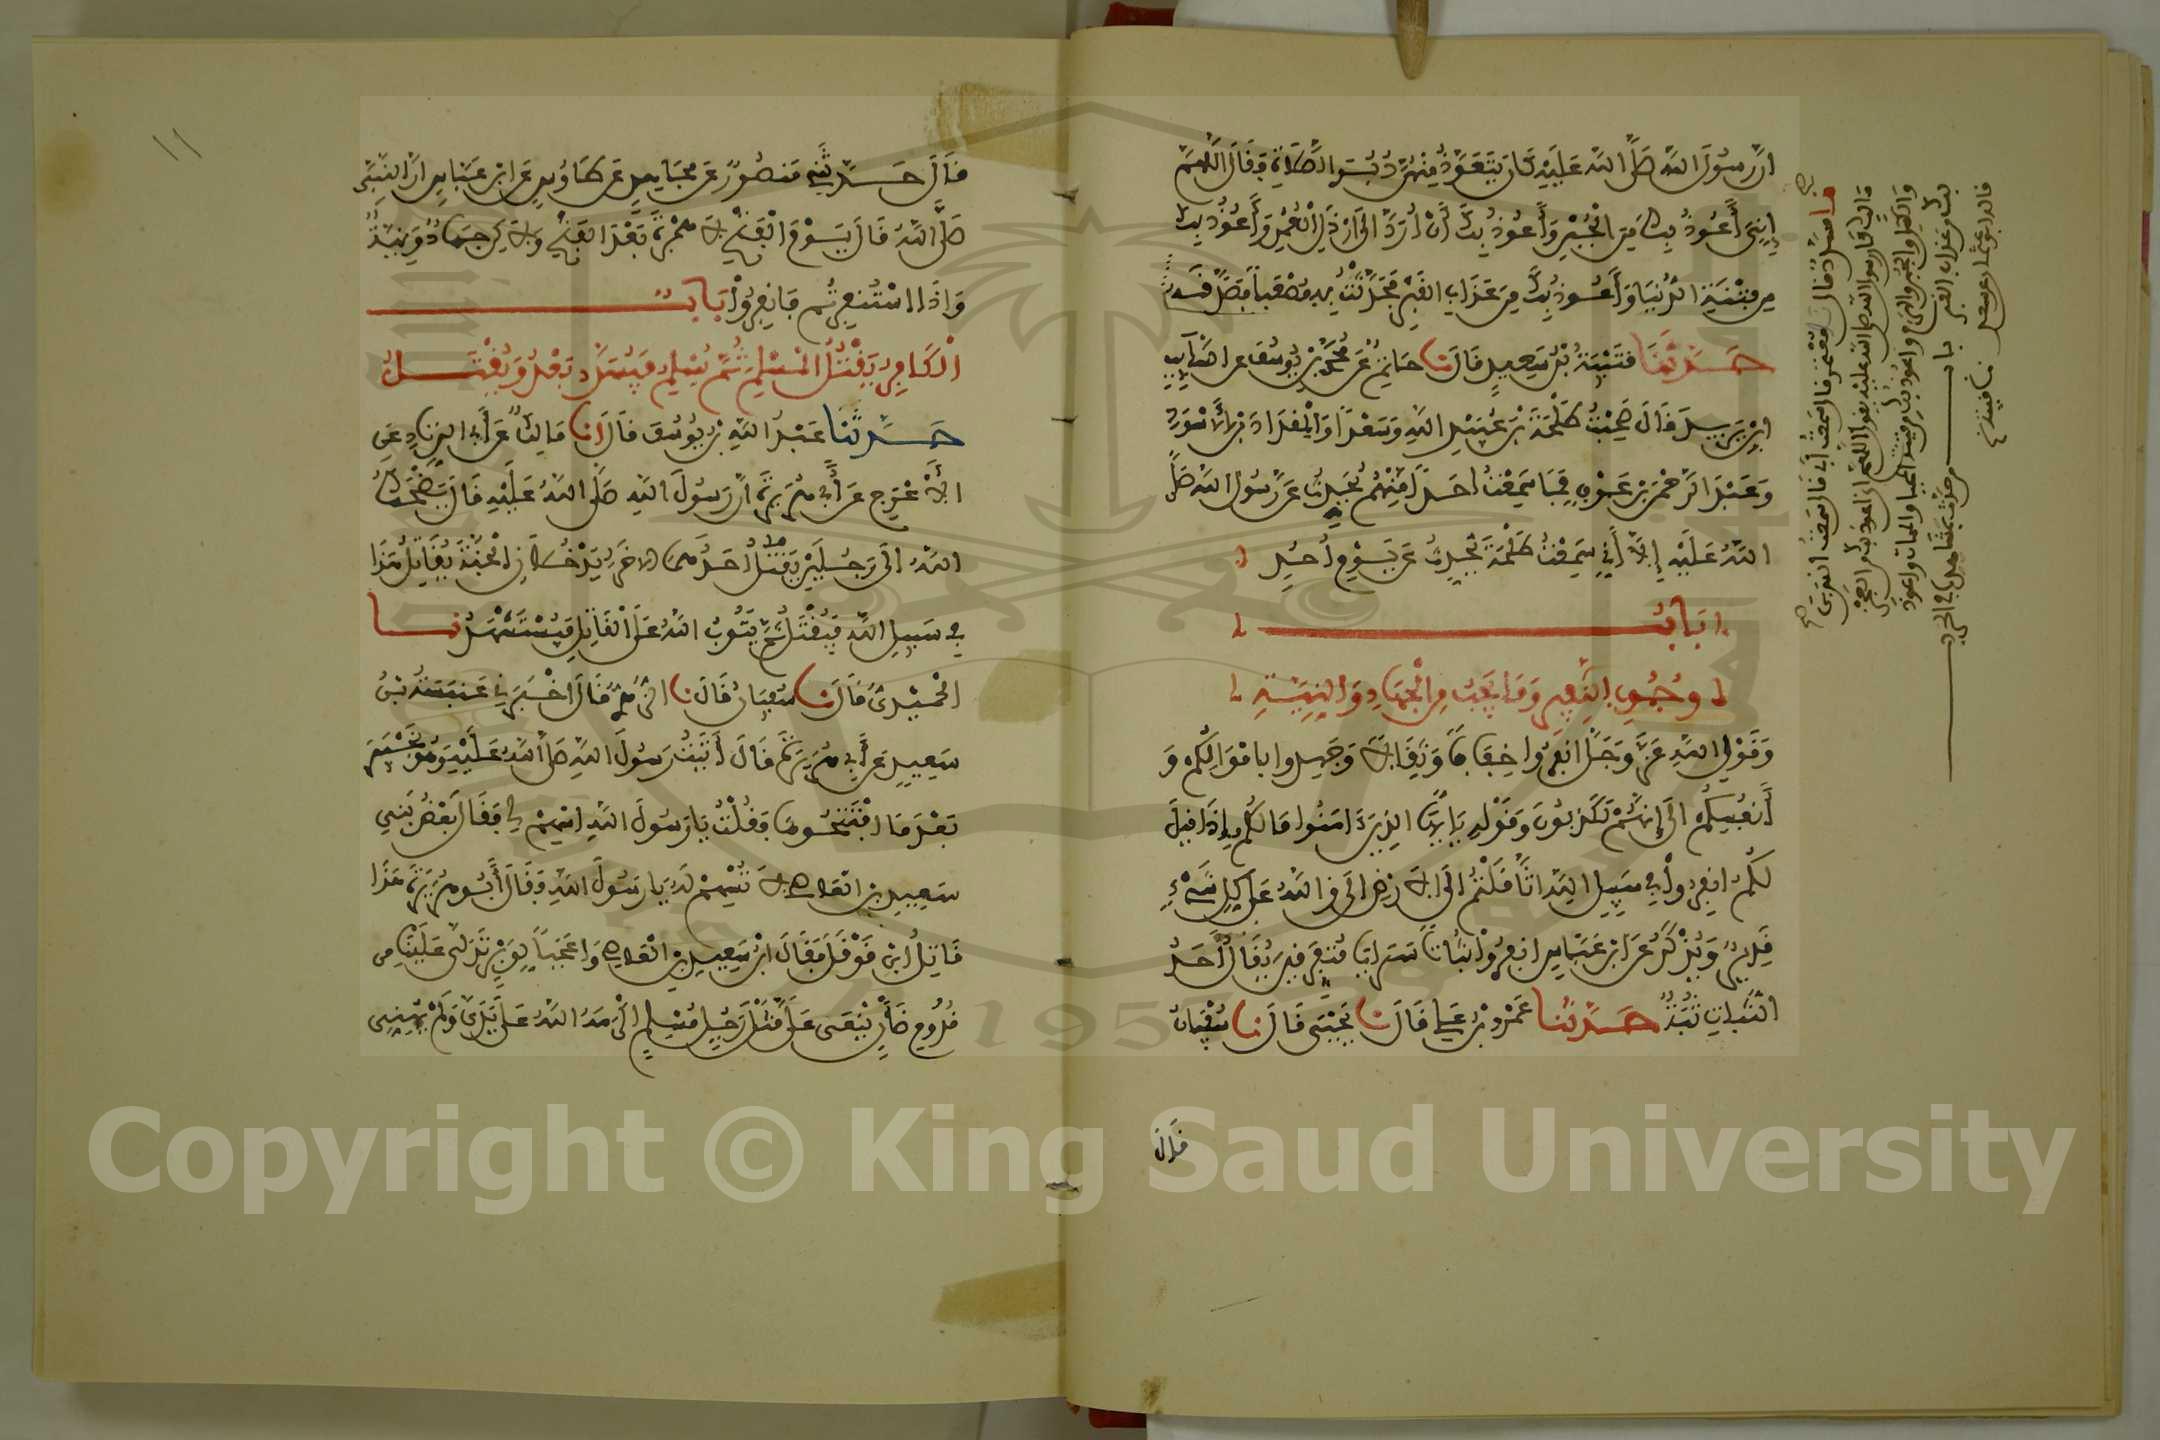 ان رسول الله صلى الله عليه كان يتعوذ منهن دبر الصلاة فقال اللهم
إني أعوذ بك من الجبن وأعوذ بك أن أرد الى ارذل العمر وأعوذ بك
من فتنة الدنيا وأعوذ بك من عذاب القبر فحدثت به مصعبا فصدقه
حدثنا قتيبة بن سعيد قال نا حاتم عن محمد بن يوسف عن السايب
ابن يزيد قال صحبت طلحة بن عبيد الله وسعدا والمقداد بن الأسود
وعبد الرحمن بن عوف فما سمعت احدا منهم يحدث عن رسول الله صلى
الله عليه إلا أني سمعت طلحة يحدث عن يوم أحد
باب
وجوب النفير وما يجب من الجهاد والنية
وقول الله عز وجل انفروا خفافا وثقالا وجهدوا باموالكم و
أنفسكم الى إنهم لكذبون وقوله يأيها الذين ءامنوا مالكم إذا قيل
لكم انفروا في سبيل الله اثاقلتم الى الارض الى والله على كل شيء
قدير ويذكر عن ابن عباس انفروا ثباتا سرايا متفرقين يقال أحد
الثبات ثبة حدثنا عمرو بن علي قال نا يحيى قال نا سفيان
قال
قال حدثني منصور عن مجاهد عن طاوس عن ابن عباس ان النبي
صلى الله قال يوم الفتح لا هجرة بعد الفتح ولاكن جهاد ونية
واذا استنفرتم فانفروا باب
الكافر يقتل المسلم ثم يسلم فيسدد بعد ويقتل
حدثنا عبد الله بن يوسف قال انا مالك عن أبي الزناد عن
الأعرج عن أبي هريرة ان رسول الله صلى الله عليه قال يضحك
الله الى رجلين يقتل أحدهما الاخر يدخلان الجنة يقاتل هذا
في سبيل الله فيقتل ثم يتوب الله على القاتل فيستشهد نا
الحميدي قال نا سفيان قال نا الزهري قال اخبرني عنبسة بن
سعيد عن أبي هريرة قال أتيت رسول الله صلى الله عليه وهو بخيبر
بعد ما افتتحوها فقلت يا رسول الله اسهم لي فقال بعض بني
سعيد بن العاص لا تسهم له يا رسول الله فقال أبو هريرة هذا
قاتل ابن قوقل فقال ابن سعيد بن العاص واعجبا لوبر تدلى علينا من
قدوم ضأن ينعى علي قتل رجل مسلم اكرمه الله على يدي ولم يهني